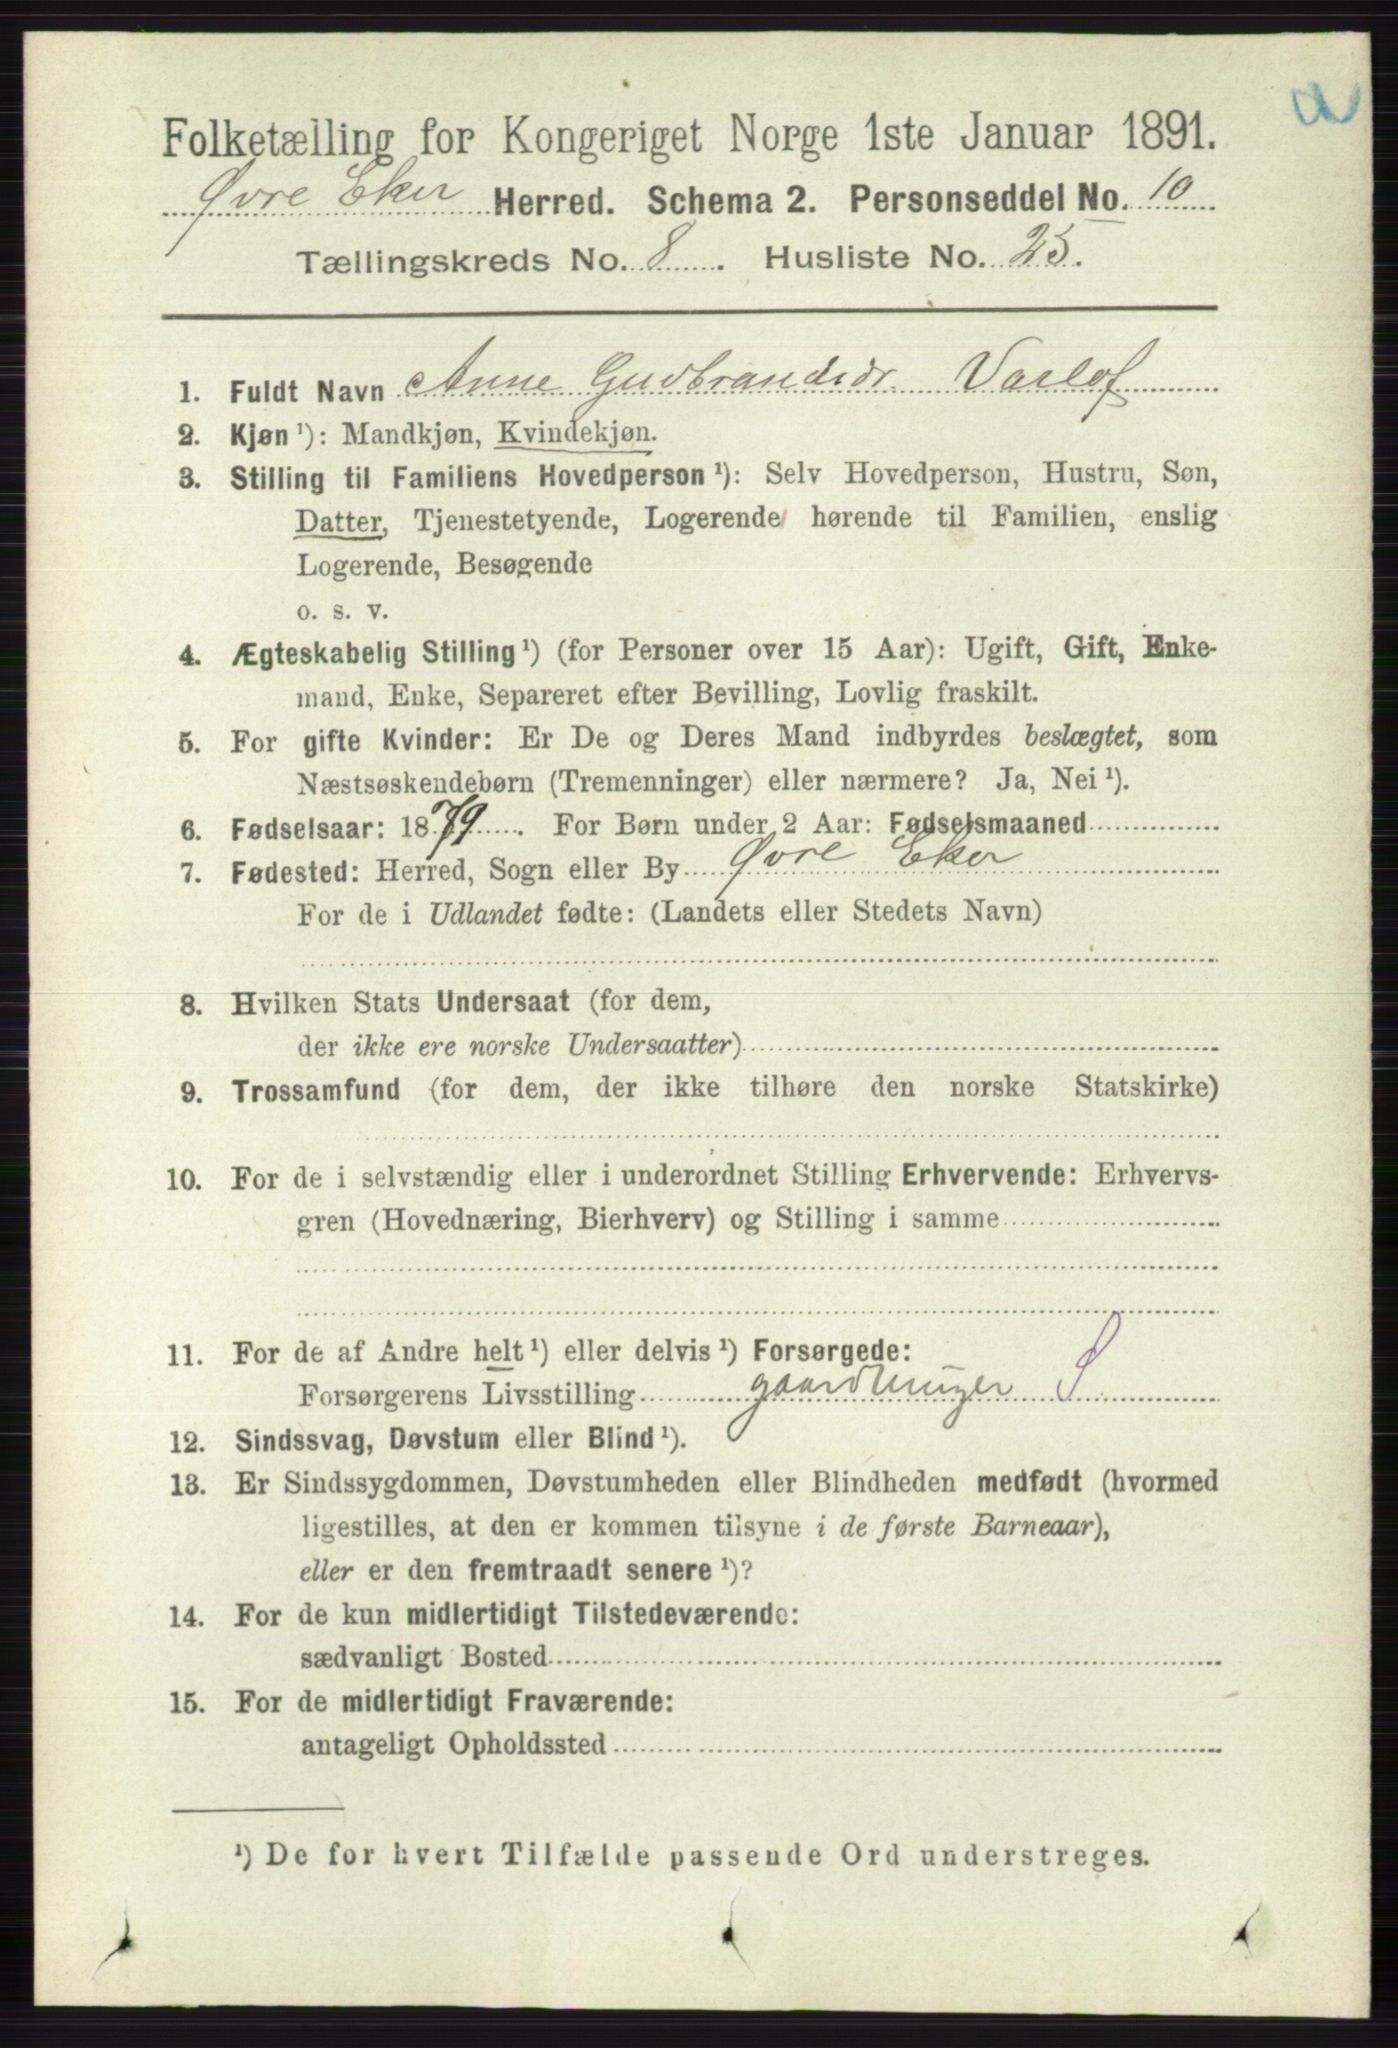 Folketælling for Kongeriget Norge 1ste Januar 1891.
Øvre Eker Herred. Schema 2. Personseddel No. 10
Tællingskreds No. 8. Husliste No. 25.
1. Fuldt Navn Anne Gudbrandsdr. Varlof
2. Kjøn ¹): Mandkjøn, Kvindekjøn.
3. Stilling til Familiens Hovedperson ¹): Selv Hovedperson, Hustru, Søn,
Datter, Tjenestetyende, Logerende hørende til Familien, enslig
Logerende, Besøgende
o. s. v.
4. Ægteskabelig Stilling ¹) (for Personer over 15 Aar): Ugift, Gift, Enke-
mand, Enke, Separeret efter Bevilling, Lovlig fraskilt.
5. For gifte Kvinder: Er De og Deres Mand indbyrdes beslægtet, som
Næstsøskendebørn (Tremenninger) eller nærmere? Ja, Nei ¹).
6. Fødselsaar: 1879. For Børn under 2 Aar: Fødselsmaaned
7. Fødested: Herred, Sogn eller By Øvre Eker
For de i Udlandet fødte: (Landets eller Stedets Navn)
8. Hvilken Stats Undersaat (for dem,
der ikke ere norske Undersaatter)
9. Trossamfund (for dem, der ikke tilhøre den norske Statskirke)
10. For de i selvstændig eller i underordnet Stilling Erhvervende: Erhvervs-
gren (Hovednæring, Bierhverv) og Stilling i samme
11. For de af Andre helt ¹) eller delvis ¹) Forsørgede:
Forsørgerens Livsstilling gaardbruger S
12. Sindssvag, Døvstum eller Blind ¹).
13. Er Sindssygdommen, Døvstumheden eller Blindheden medfødt (hvormed
ligestilles, at den er kommen tilsyne i de første Barneaar),
eller er den fremtraadt senere ¹)?
14. For de kun midlertidigt Tilstedeværende:
sædvanligt Bosted
15. For de midlertidigt Fraværende:
antageligt Opholdssted
¹) De for hvert Tilfælde passende Ord understreges.